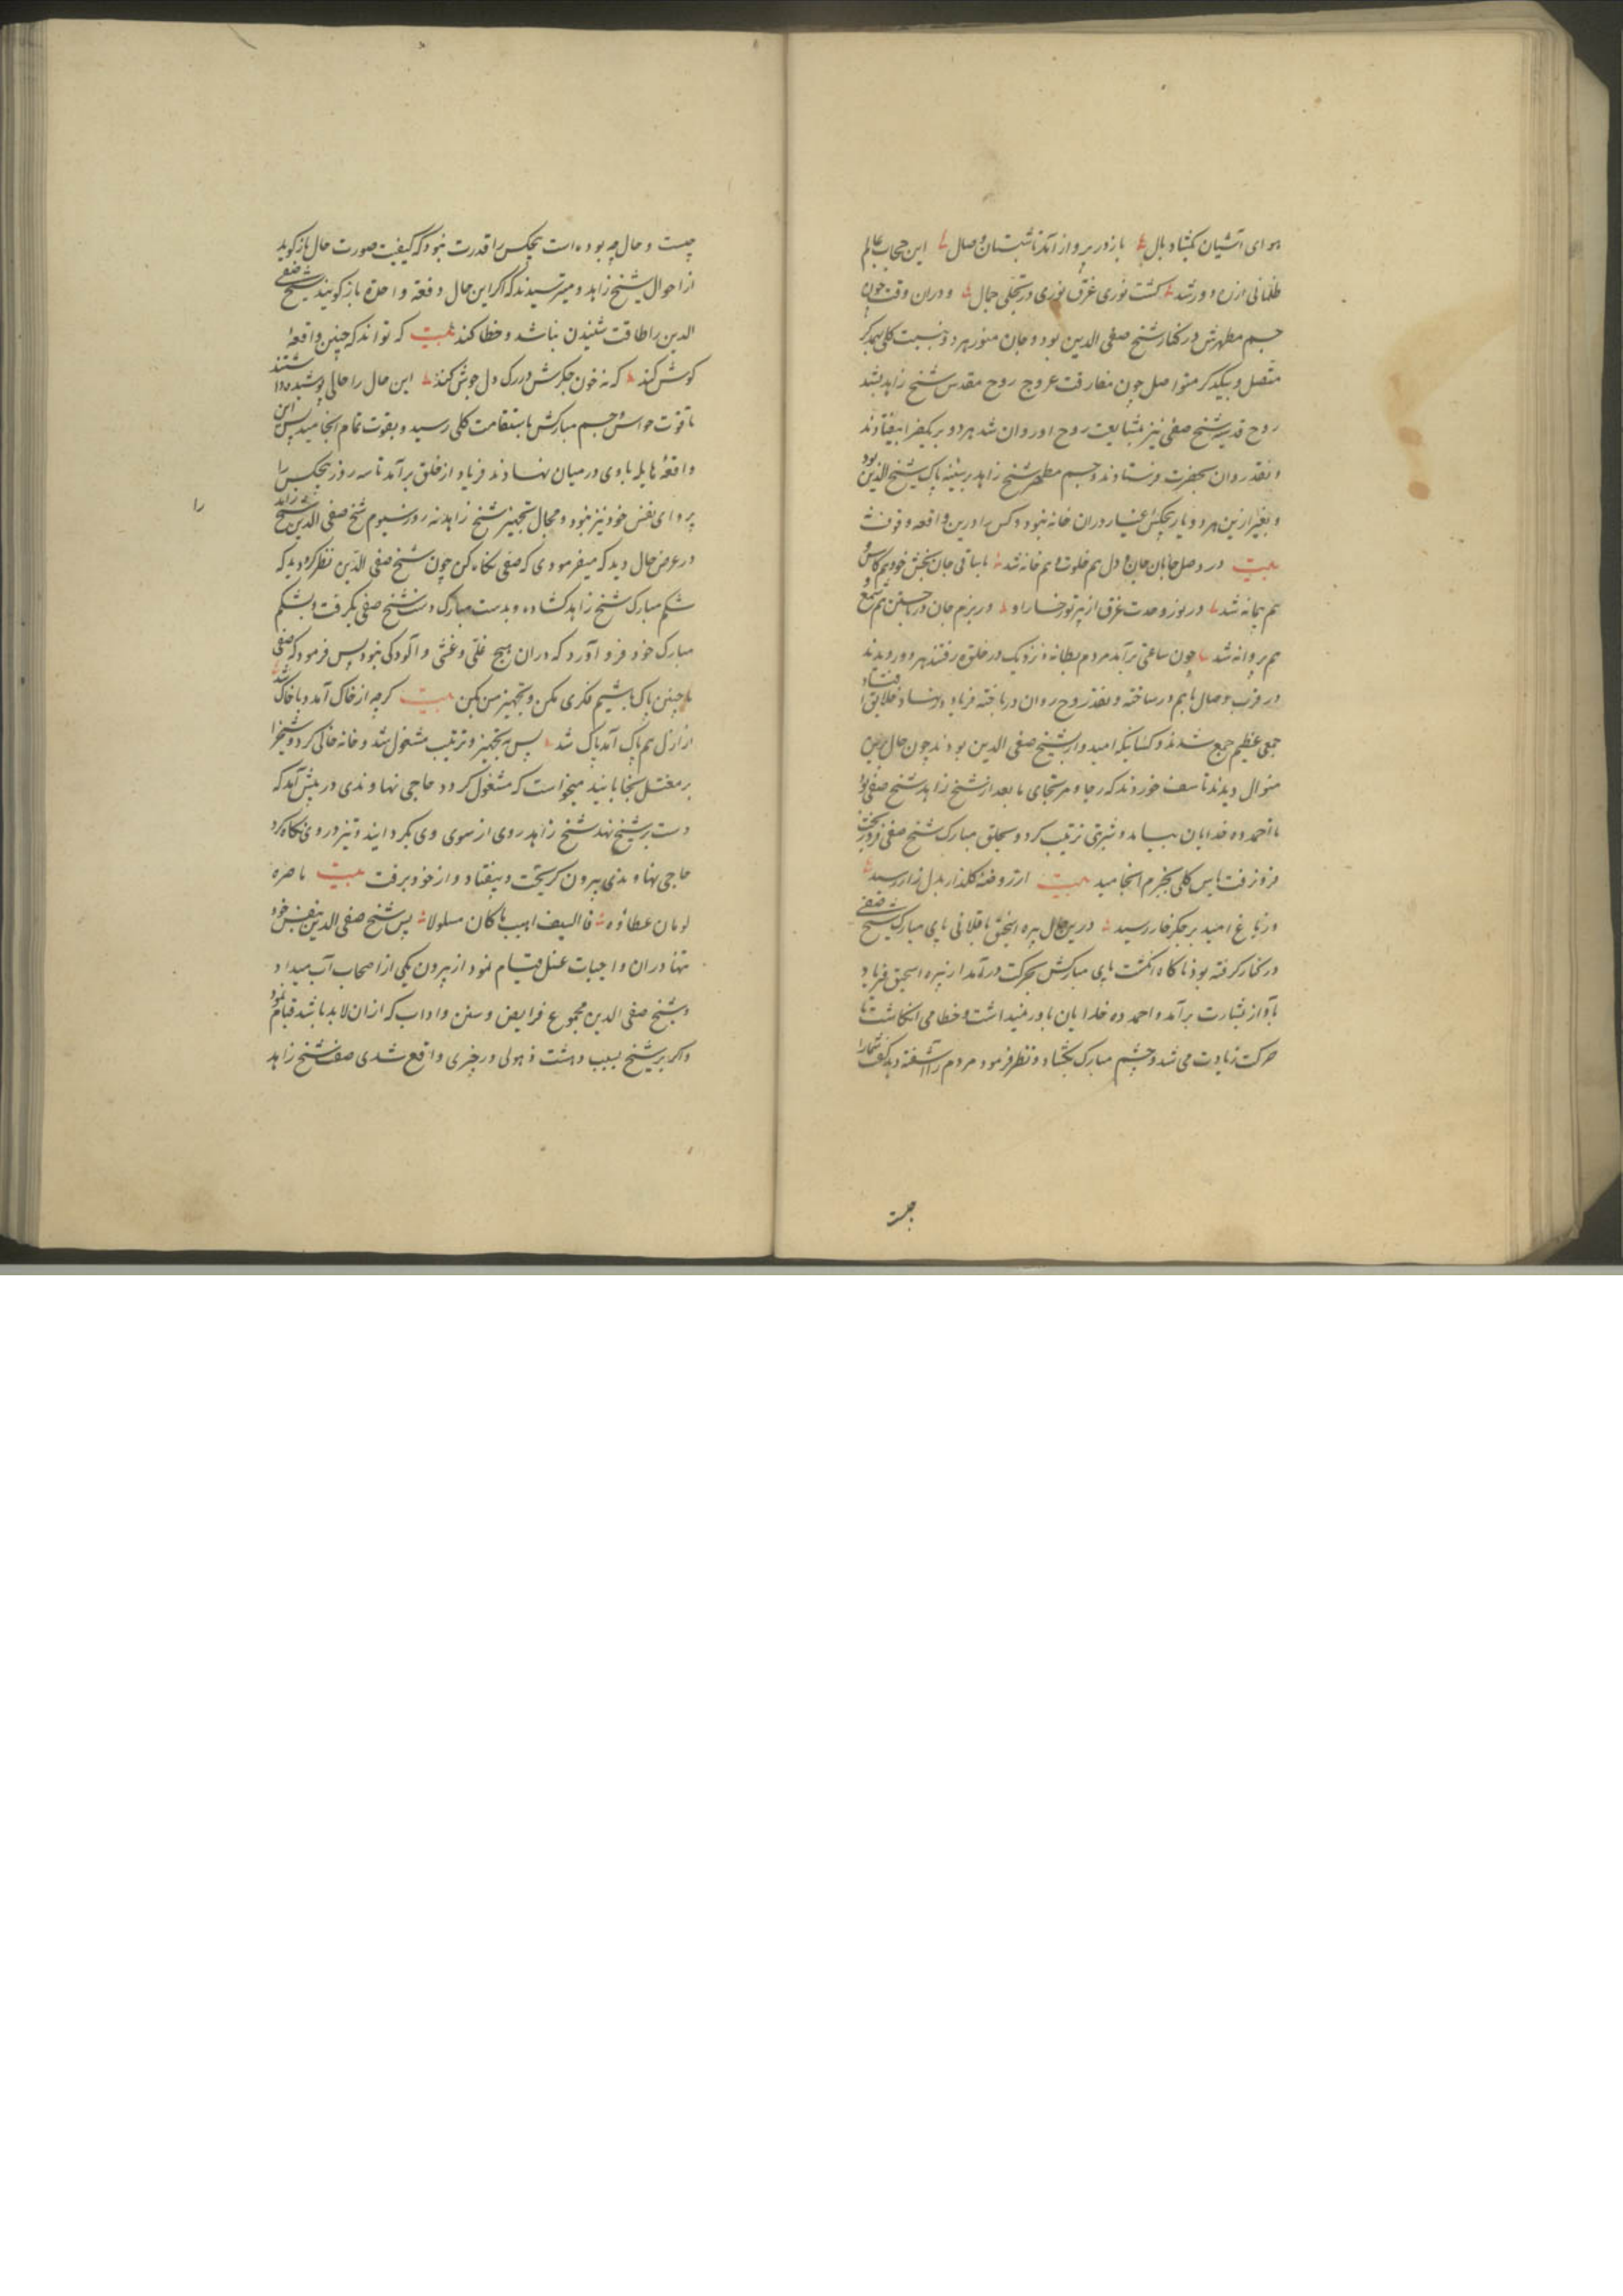 هوای آشیان بگشاد بال بازور پرواز آمد تا شبستان وصال این حجاب عالم
ظلمانی ازره دور شد گشت نوری غرق نوری در تجلی جمال ودران وقت چون
جسم مطهرش در کنار شیخ صفی الدین بود وجان منور هر دو بنسبت کلی بهمدگر
متصل وبیکدیگر متواصل چون مفارقت عروج روح مقدس شیخ زاهد بشد
روح قدسیه شیخ صفی نیز بمشایعت روح او روان شد هر دو بیکبار بیفتادند
ونقد روان بحضرت فرستادند وجسم مطهر شیخ زاهد بر سینه پاک شیخ صفی الدین بود
وبغیر ازین هر دو یار هیچکس اغیار دران خانه نبود وکس را درین واقعه وقوف نه
بیت در وصل جانان جان ودل هم خلوت وهم خانه شد با ساقی جان بخش خود هم کاس و
هم پیمانه شد در نور وحدت غرق از پرتو رخسار او در بزم جان هم شمع و
هم پروانه شد چون ساعتی برآمد مردم بطانه ونزدیک در خلوة رفتند هر دو را دیدند
در قرب وصال با هم در ساخته ونقد روح روان در باخته فریاد در نهاد خلایق افتاد
جمعی عظیم جمع شدند وکسانیکه امیدوار بشیخ صفی الدین بودند چون حال برین
منوال دیدند تاسف خوردند که رجا ومرتجای ما بعد از شیخ زاهد شیخ صفی بود
تا احمد ده خدایان بیامد وشربتی ترتیب کرد وبحلق مبارک شیخ صفی فرو ریخت
فرو نرفت یاس کلی بجزم انجامید بیت از روضه گلزار بدل زار رسید
وز باغ امید بر جگر خار رسید درین حال پیره اسحق باقلانی پای مبارک شیخ صفی
در کنار گرفته بود ناگاه انگشت پای مبارکش بحرکت درآمد از پیره اسحق فریاد
بآواز بشارت برآمد واحمد ده خدایان باور نمیداشت وخطا می انگاشت تا
حرکت زیادت می شد وچشم مبارک بگشاد ونظر فرمود مردم را آشفته دید گفت شمارا
چیست
چیست وحال چه بوده است هیچکس را قدرت نبود که کیفیت صورت حال باز گوید
از احوال شیخ زاهد ومیترسیدند که اگر این حال دفعة واحدة باز گویند شیخ صفی
الدین را طاقت شنیدن نباشد وخطا کند بیت که تواند که چنین واقعه
گوش کند که نه خون جگرش در رگ دل جوش کند این حال را حالی پوشیده داشتند
تا قوت حواس وجسم مبارکش باستقامت کلی رسید وبقوت تمام انجامید پس این
واقعه هایله با وی در میان نهادند فریاد از خلق برآمد تا سه روز هیچکس را
پروای نفس خود نیز نبود ومجال تجهیز شیخ زاهد نه روز سیوم شیخ صفی الدین شیخ زاهد را
در عرض حال دید که میفرمودی که صفی نگاه کن چون شیخ صفی الدین نظر کرد دید که
شکم مبارک شیخ زاهد گشاده وبدست مبارک دست شیخ صفی بگرفت وبشکم
مبارک خود فرو آورد که دران هیچ غلی وغشی وآلودگی نبود پس فرمود که صفی
ما چنین پاک باشیم فکری مکن وتجهیز من بکن بیت گرچه از خاک آمد وبا خاک شد
از ازل هم پاک آمد پاک شد پس به تجهیز وترتیب مشغول شد وخانه خالی کرد وشیخ را
بر مغتسل بخابانید میخواست که مشغول گردد حاجی نهاوندی در پیش آمد که
دست بر شیخ نهد شیخ زاهد روی از سوی وی بگردانید وتیز در وی نگاه کرد
حاجی نهاوندی بیرون گریخت وبیفتاد واز خود برفت بیت ما ضره
لو مان عطاؤه فالسیف اهیب ما کان مسلولا پس شیخ صفی الدین بنفس خود
تنها دران واجبات غسل قیام نمود از بیرون یکی از اصحاب آب میداد
وشیخ صفی الدین مجموع فرایض وسنن واداب که ازان لابد باشد قیام نمود
واگر بر شیخ بسبب دهشت ذهولی در چیزی واقع شدی شیخ زاهد